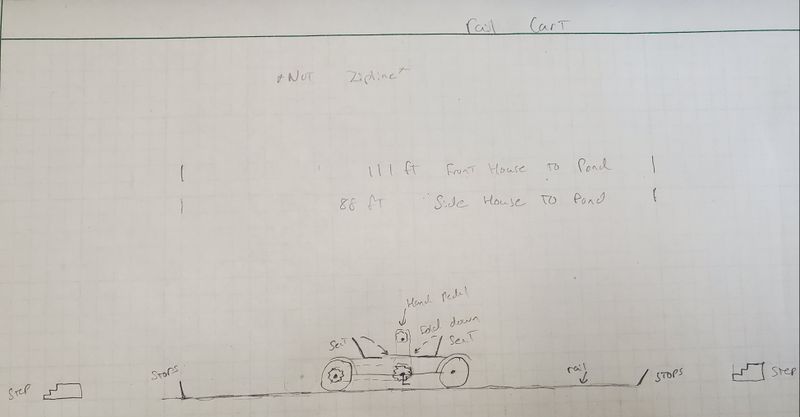 rail Cart
*Not Zipline*
111 ft Front House to Pond
88 ft Side House To Pond
Hand Pedal
Fold down
Seat
Seat
rail
Stops
Stops
Step
Step